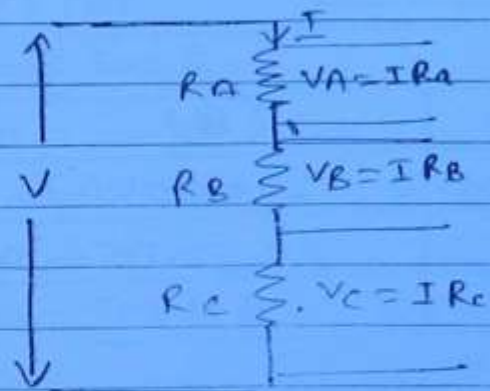 I
RA VA = IRa
V RB VB = IRB
RC . VC = IRc